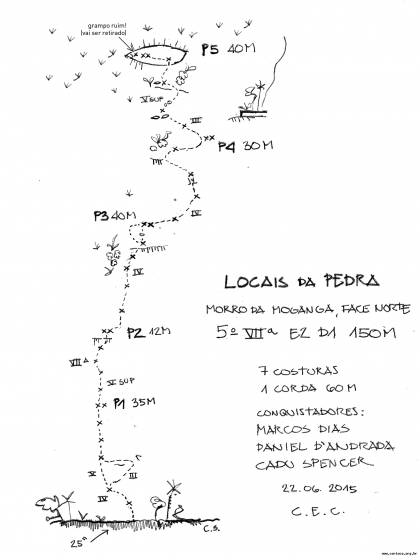 grampo ruim!
(vai ser retirado)
P5 40M
V SUP
III
P4 30M
P3 40M
IV
IV
LOCAIS DA PEDRA
MORRO DA MOGANGA, FACE NORTE
5º VIIa E2 D1 150M
P2 12M
VIIa
VI SUP
P1 35M
7 COSTURAS
1 CORDA 60M
CONQUISTADORES:
MARCOS DIAS
DANIEL D'ANDRADA
CADU SPENCER
V
III
IV
22.06.2015
C.E.C.
25°
C.S.